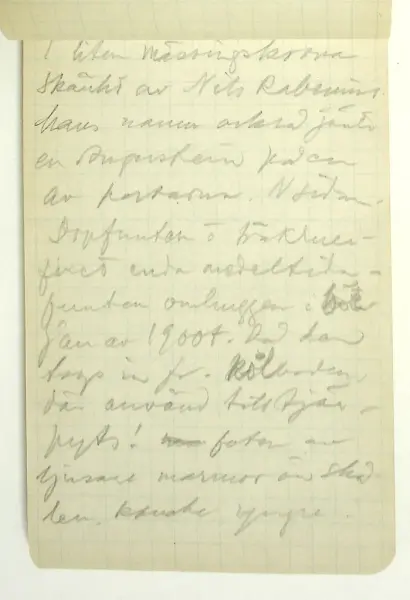 1 liten mässingskrona
skänkt av Nils Rabenius.
hans namn också jämte
en på en
av portarna. N sidan.
Dopfunten i
enda medeltida -
funten omhuggen i
jan av 1900t. Vad den
togs in fr.
där använd till tjär -
pyts! foten av
ljusare marmor än skå
len, kanske yngre.